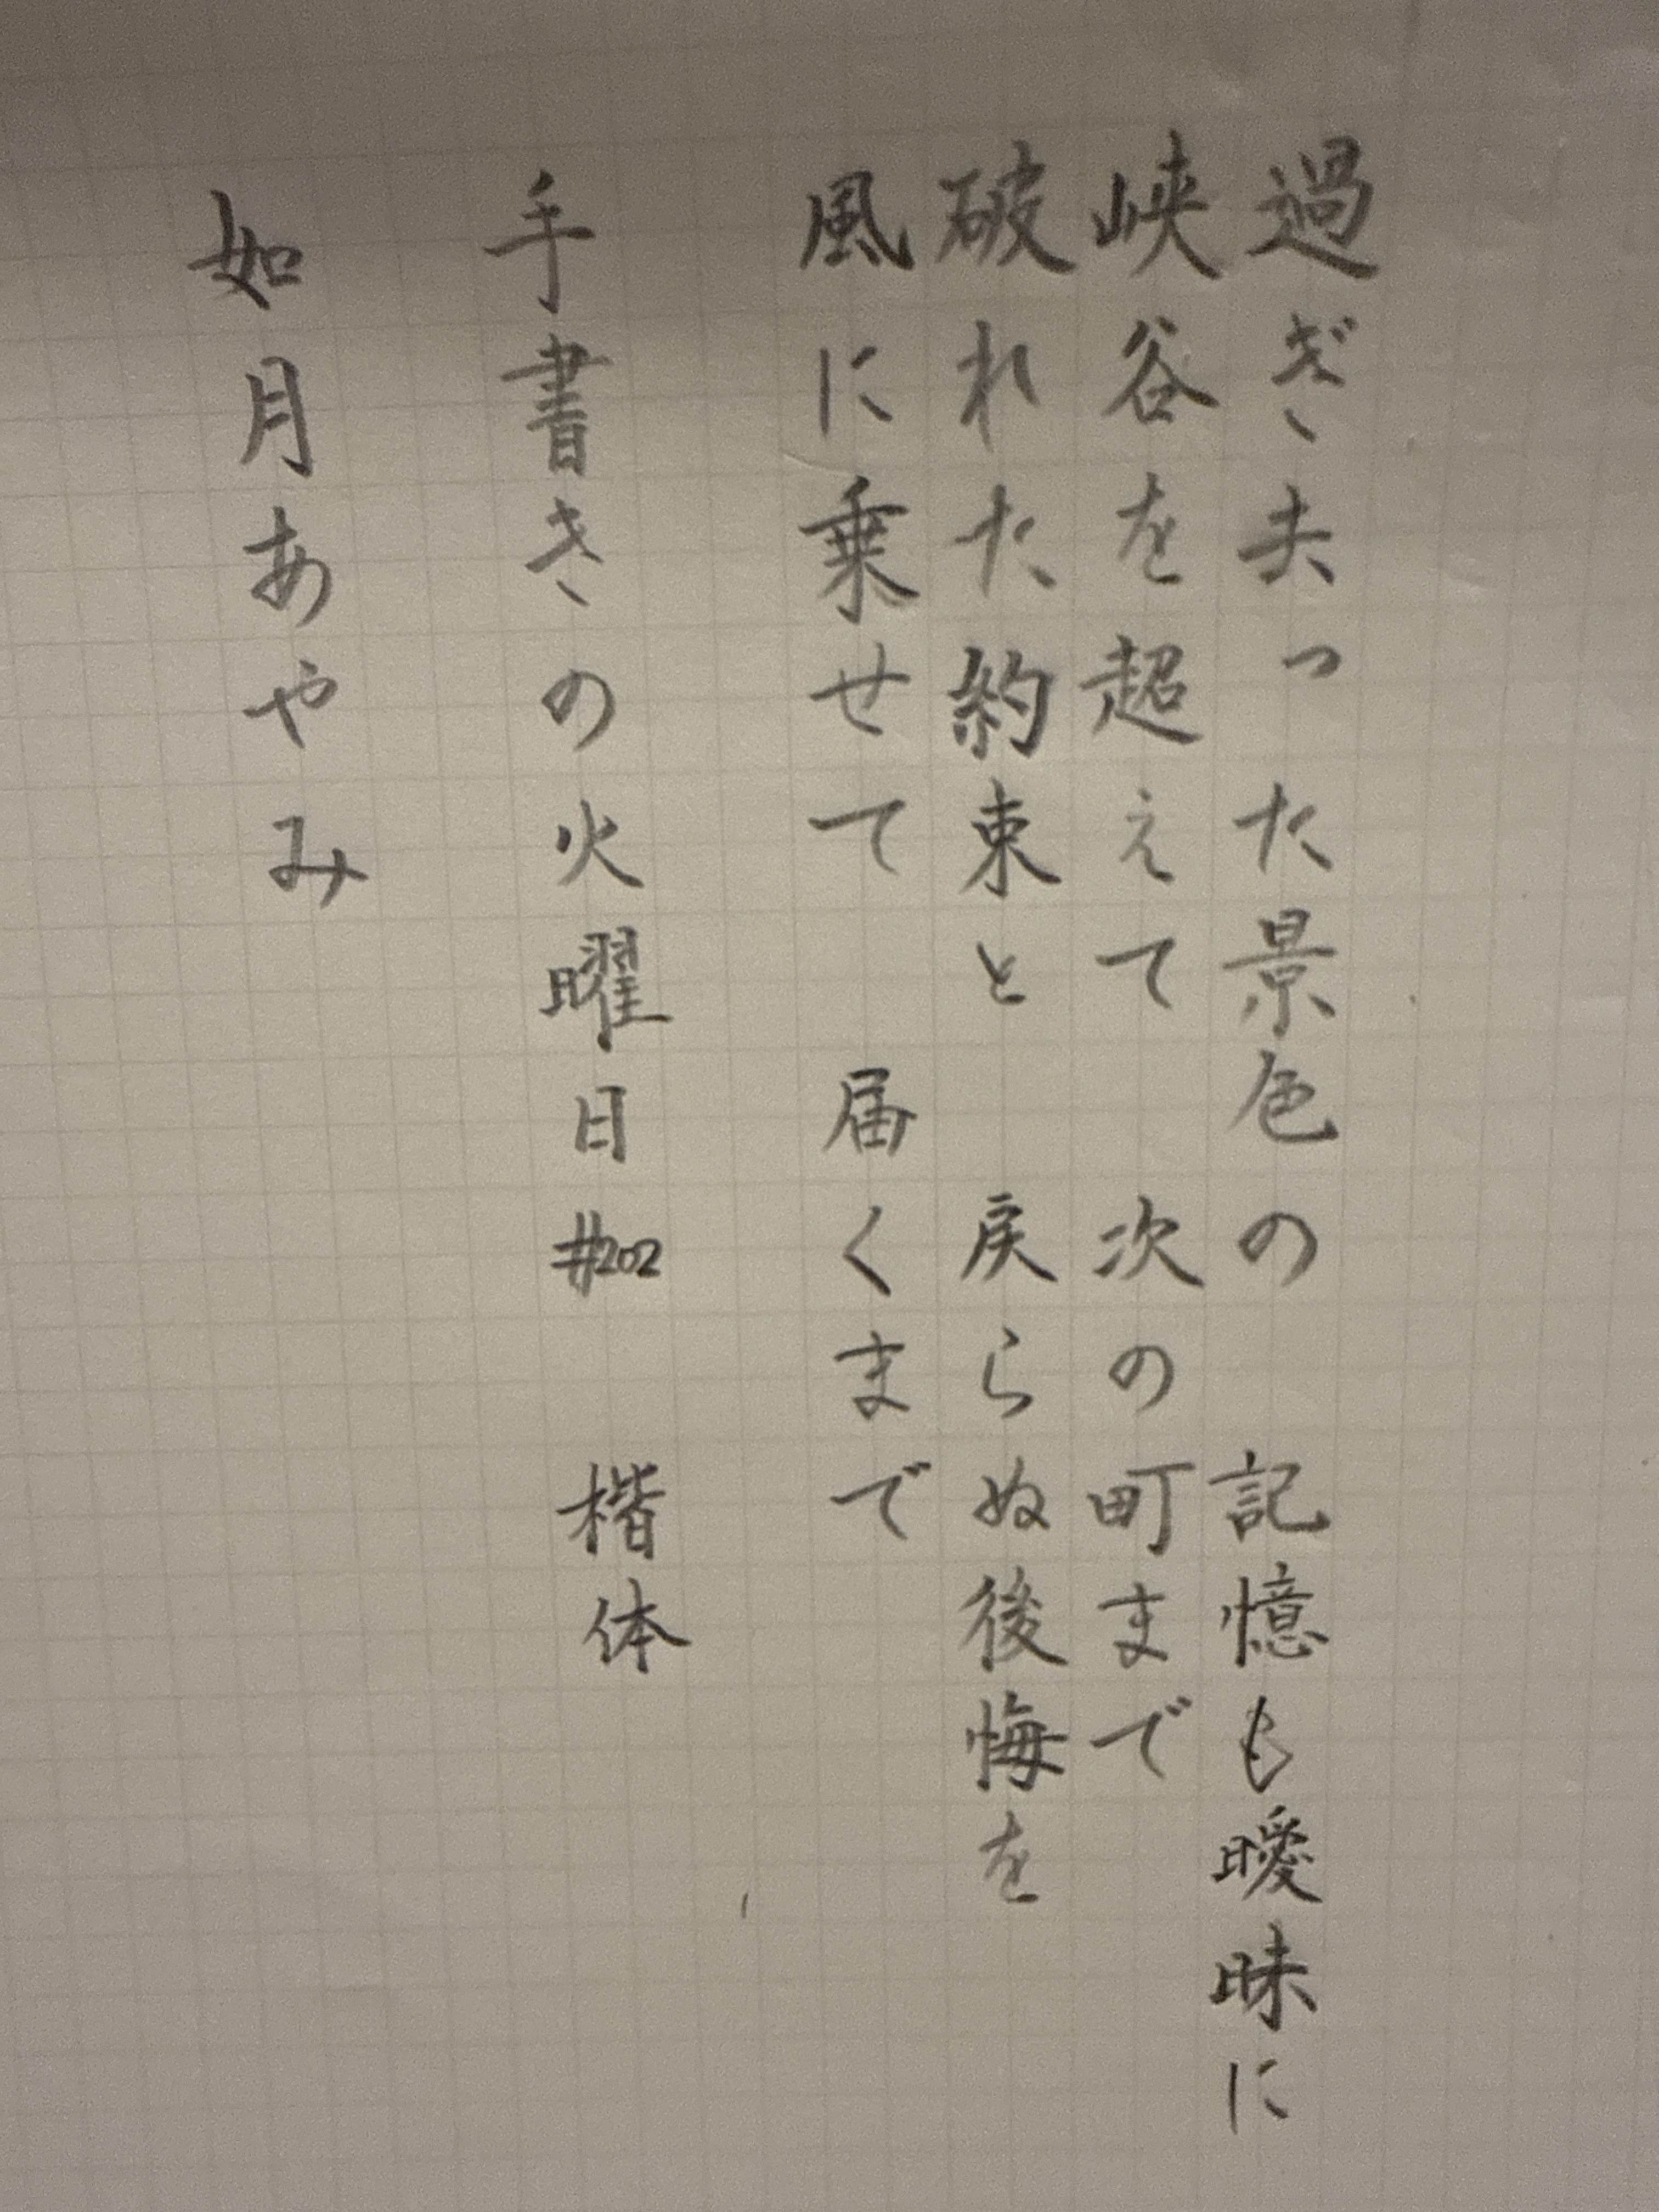 過ぎ去った景色の 記憶も曖昧に
峡谷を超えて 次の町まで
破れた約束と 戻らぬ後悔を
風に乗せて 届くまで
手書きの火曜日#202 楷体
如月あやみ